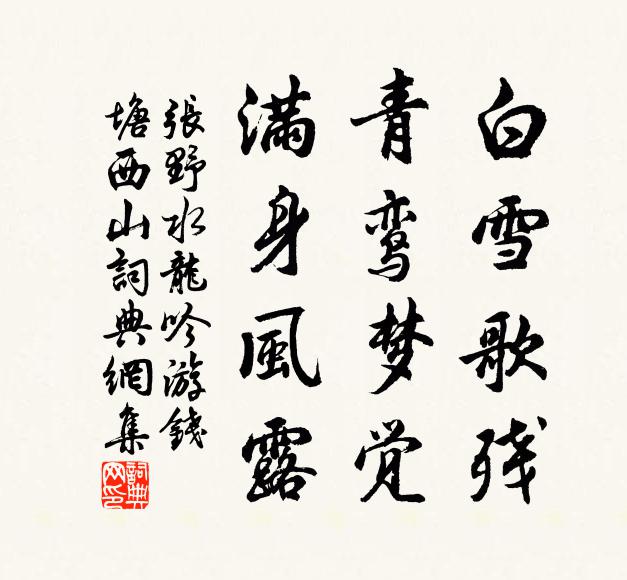 白雪歌残
青鸾梦觉
满身風露
張野水龍吟游錢
塘西山詞典網集
詞典
网印